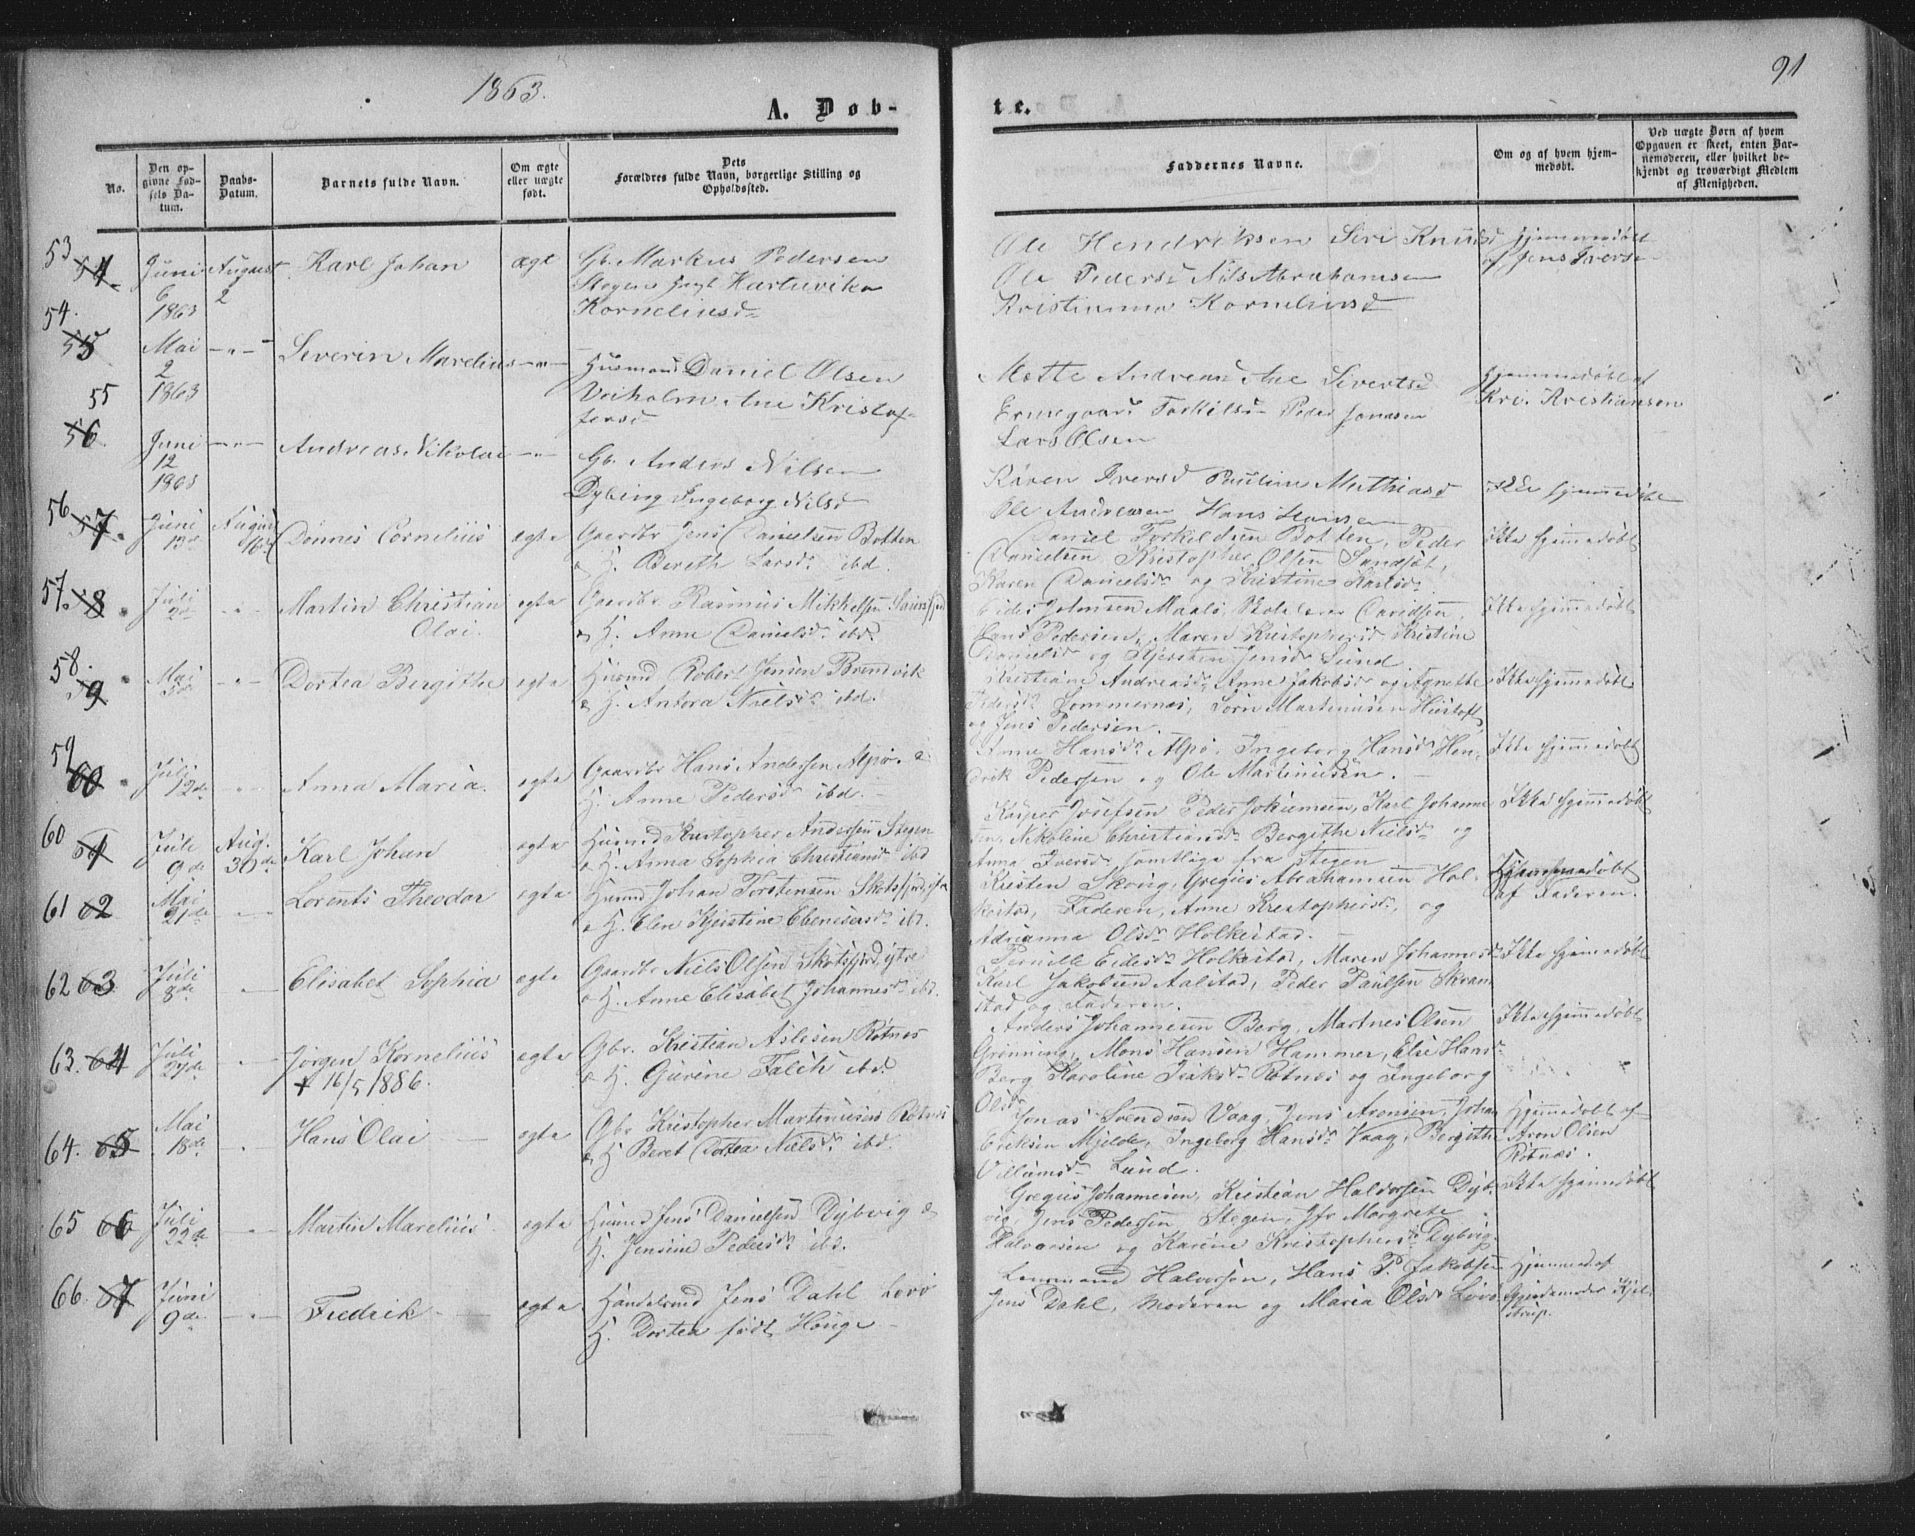 1863.
91
A. Døb-
te.
No.
Den op-
givne Fød-
sels Da-
tum.
Daabs-
Datum.
Barnets fulde Navn.
Om ægte
eller uægte
født.
Dets
Forældres fulde Navn, borgerlige Stilling og
Opholdssted.
Faddernes Navne.
Om og af hvem hjem-
medøbt.
Ved uægte Børn af hvem
Opgaven er skeet, enten Bar-
nemoderen, eller hvilket be-
kjendt og troværdigt Medlem
af Menigheden.
53 54 Juni August Karl Johan ægt Gb. Markus Pedersen
6 2
1863
Kornelius
Ole Hendriksen Siri Knuds
Ole Peders Nils Abrahamsen
Kristianna Kornelius
Hjemmedøbt
af Jens Iversen
54. 55 Mai Severin Marelius Husmand Daniel Olsen
2
1863
Ane Kristof-
fers
Mette Andreas Ane Siverts
Peder Jonasen
Lars Olsen
Hjemmedøbt af
Kristiansen
55 56 Juni Andreas Nikolai Gb. Anders Nilsen
12
1863
Dybing Ingeborg Nilsd
Karen Iversd Pauline Mathiasd
Ole Andreasen Hans Hansen
Ikke hjemmedøbt
56 57. Juni August Dønnes Cornelius ægte Gaardbr Jens Danielsen Botten
13de 16de
& H. Bereth Larsdr ibd.
Daniel Torkildsen Botten, Peder
Danielsen Kristopher Olsen
Karen Danielsdr og Kristine Karlsdr
Ikke hjemmedøbt
57. 58 Juli Martin Christian ægte Gaardbr Rasmus Mikkelsen
2de Olai.
& H. Anne Danielsdr ibd.
Johnsen Skolelærer Davidsen,
Hans Pedersen, Maren Kristophersdr Kristine
Danielsdr og Kjersten Jensdr Lund
Ikke hjemmedøbt
58. 59 Mai Dortea Bergithe ægte Husmd Robert Jensen Brendvik
& H. Antora Nielsdr ibd.
Kristiane Andreasdr, Anne Jakobsdr og Agnethe
Pedersdr Sommernæs, Sørn Martinusen
og Jens Pedersen.
Ikke hjemmedøbt
59 60 Juli Anna Maria. ægte Gaardbr Hans Andersen Alpø. &
12de
H. Anne Pedersdr ibd.
Anne Hansdr Alpø, Ingeborg Hansdr Hen-
drik Pedersen og Ole Martinusen.
Ikke hjemmedøbt
60 61 Juli Aug. Karl Johan ægte Husmd Kristopher Andersen Stegen
9de 30de
& H. Anna Sophia Christiansdr ibd
Kasper Josefsen Peder Jokumsen, Karl Johanne
sen, Nikoline Christiansdr Bergithe Nielsdr og
Anna Iversdr samtlige fra Stegen
Ikke hjemmedøbt
61 62 Mai Lorents Theodor ægte Husmd Johan Torstensen Skotsfjord
21de
& H. Elen Kjerstine Ebenesersdr ibd.
Kristen Skoug, Gregus Abrahamsen Hol-
kestad, Faderen, Anne Kristophersdr, og
Adrianna Olsdr Holkestad.
Hjemmedøbt
af Faderen.
62 63 Juli Elisabet Sophia ægte Gaardbr Niels Olsen Skotsfjord, ytre
8de
& H. Anne Elisabet Johannesdr ibd.
Pernille Eidesdr Holkestad, Maren Johannesdr
Karl Jakobsen Aalstad, Peder Paulsen Skram-
stad og Faderen.
Ikke hjemmedøbt
63. 64 Juli Jørgen Kornelius ægte Gbr. Kristian Aslesen Røtnes
27de + 16/5 1886.
& H. Gurine Falch ibd.
Anders Johannesen Berg, Martnes Olsen
Grønning, Mons Hansen Hammer, Else Hansdr
Berg Karoline Isaksdr Røtnes og Ingeborg
Olsdr
Ikke hjemmedøbt
64. 65 Mai Hans Olai ægte Gbr Kristopher Martinusen Røtnes
18de
& H. Beret Dortea Nielsdr ibd.
Jonas Svendsen Vaag, Jens Aronsen, Johan
Eriksen Mjelde, Ingeborg Hansdr Vaag, Bergithe
Villumsdr Lund.
Hjemmedøbt af
Aron Olsen
Røtnæs.
65 66 Juli Martin Marelius ægte Husmd Jens Danielsen Dybvig &
22de
H. Jensine Pedersdr ibd.
Gregus Johannesen, Kristian Halvorsen Dyb-
vig, Jens Pedersen Stegen, Jfr Margrete
Halvorsen og Karine Kristophersdr Dybvig.
Ikke hjemmedøbt
66. 67 Juni Fredrik ægte Handelsmd Jens Dahl Løvø
9de
H. Dortea født Houge
Lensmand Halvorsen, Hans P. Jakobsen
Jens Dahl, Moderen og Maria Olsdr Løvø
Hjemmed. af
Gjordemoder Kjel-
strup.